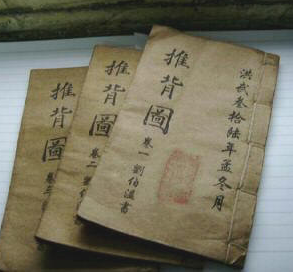 洪武叁拾陸年孟冬月
推背圖
卷一 劉伯溫書
推背圖
卷二 劉
推背圖
卷三